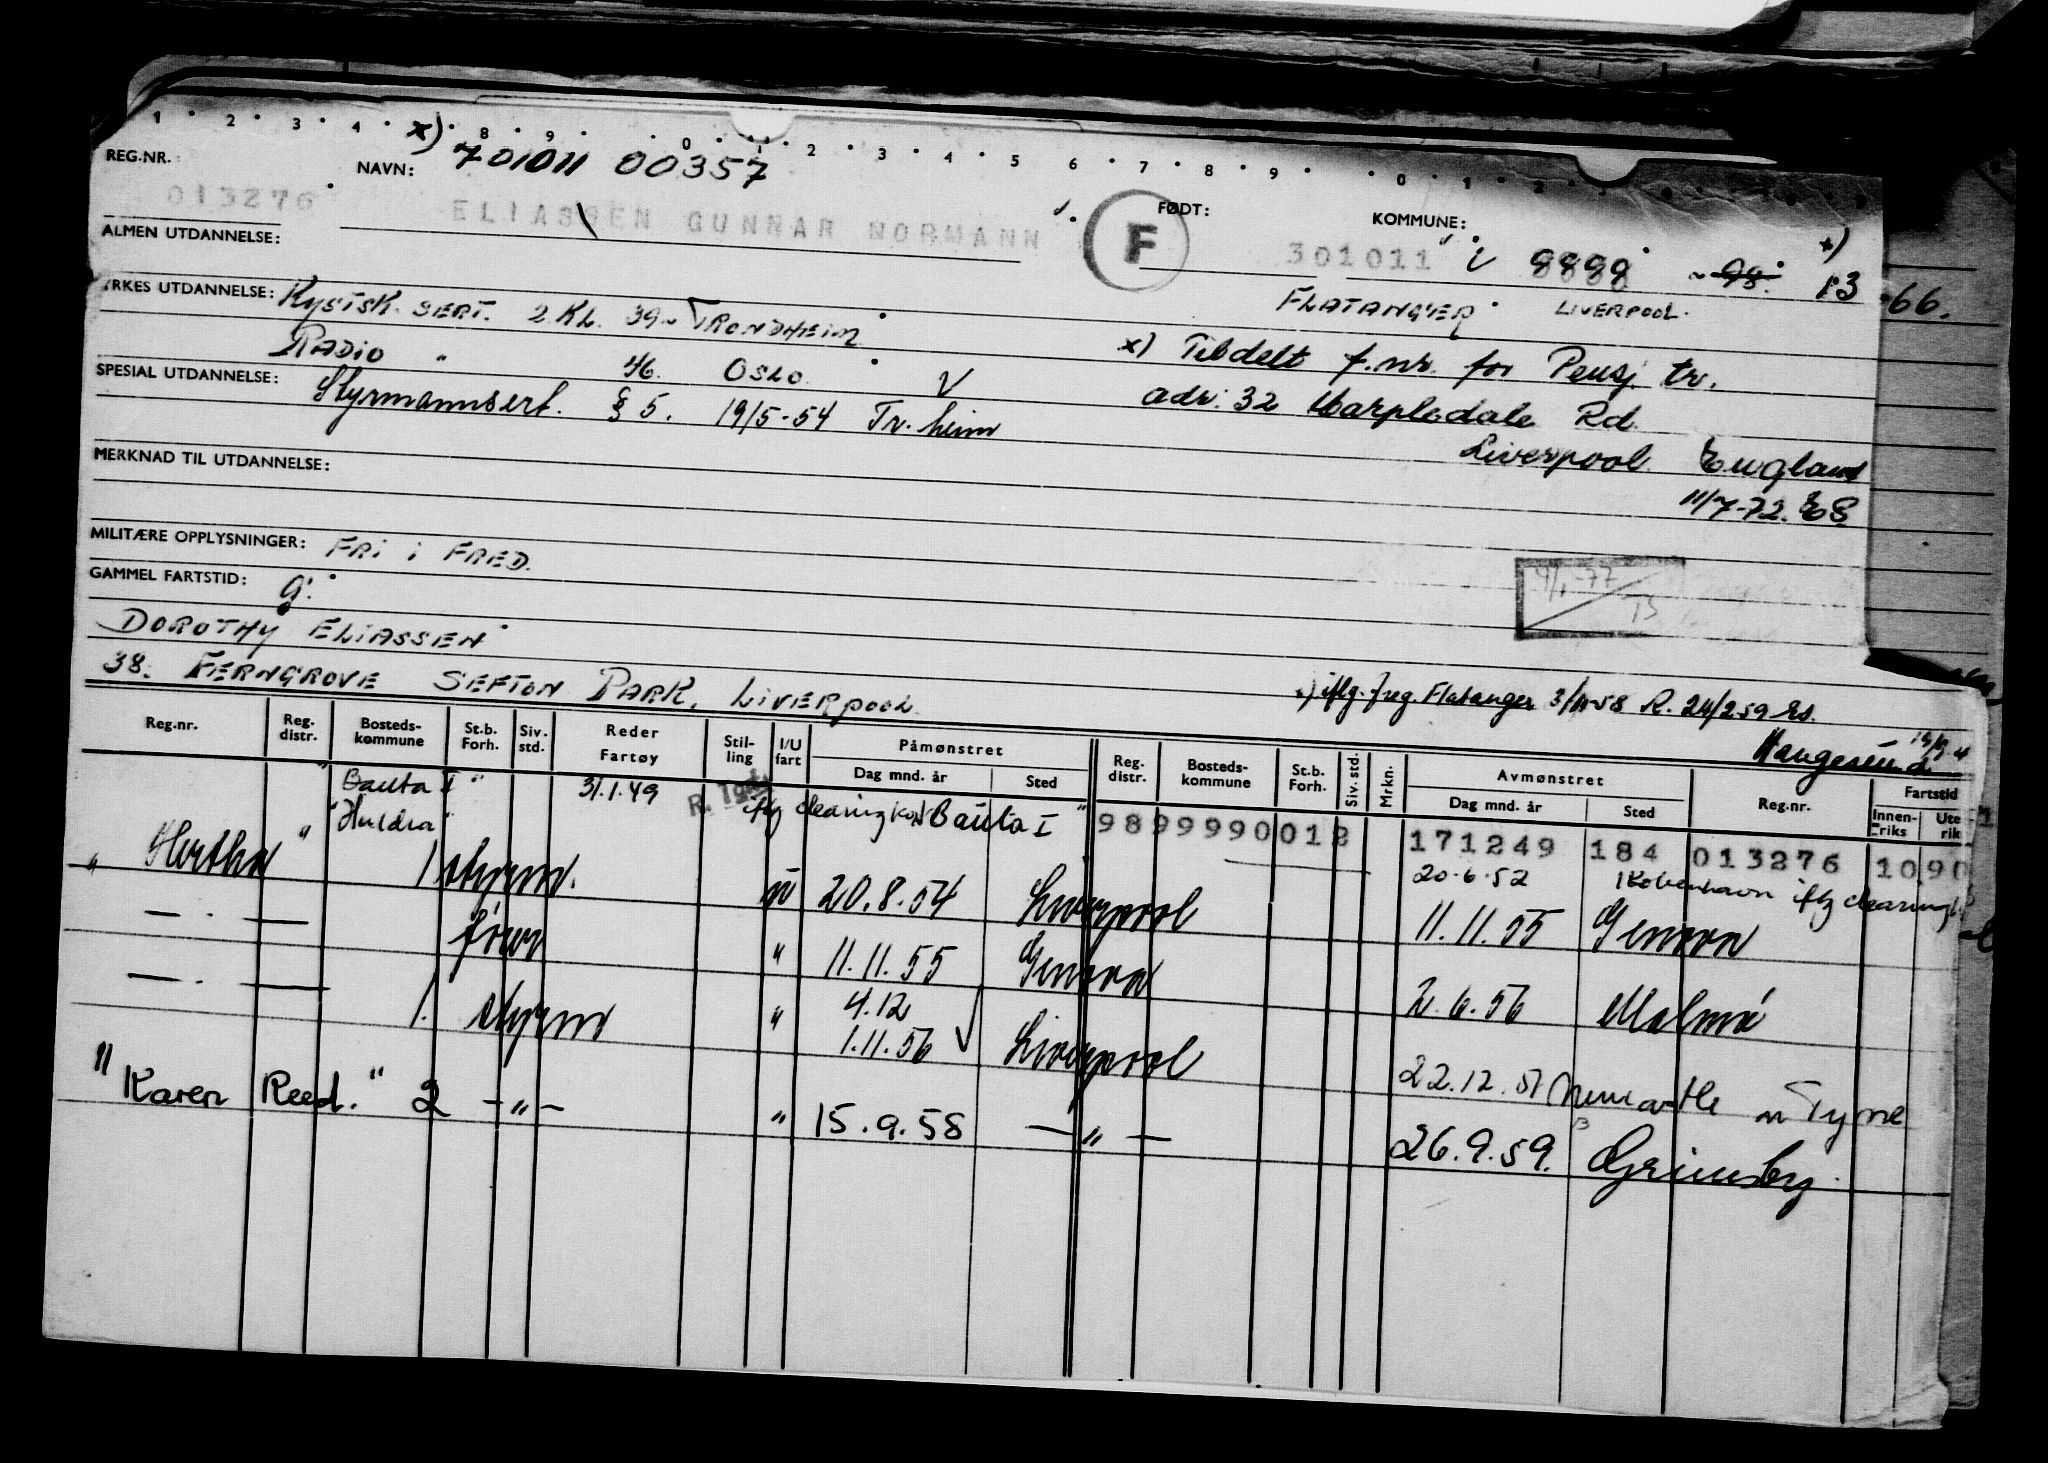 1 2 3 4 8 9 0 1 2 3 4 5 6 7 8 9 0 1 2
REG.NR. NAVN: x) 701011 00357
FØDT: KOMMUNE:
013276 ELIASSEN GUNNAR NORMANN F 301011 i 9899 98. x) 13 66.
ALMEN UTDANNELSE:
FLATANGER LIVERPOOL.
YRKES UTDANNELSE: KYSTSK. SERT. 2.KL. 39 TRONDHEIM
RADIO " 46. OSLO.
x) Tildelt f.nr. for Pensj tr.
SPESIAL UTDANNELSE: Styrmannsert. § 5. 19/5-54 Tr.heim V
adr: 32 Rd
Liverpool England
MERKNAD TIL UTDANNELSE:
11/7-72. ES.
MILITÆRE OPPLYSNINGER: FRI I FRED.
GAMMEL FARTSTID: G.
4/1-77 TS
DOROTHY ELIASSEN
38. FERNGROVE SEFTON PARK. LIVERPOOL
iflg. freg. Flatanger 3/11-58 R. 24/2 59
Haugesund
Reg.nr. Reg. distr. Bosteds- kommune St.b. Forh. Siv. std. Reder Fartøy Stil- ling I/U fart Påmønstret Dag mnd. år Sted Reg. distr. Bosteds- kommune St.b. Forh. Siv. std. Mrkn. Avmønstret Dag mnd. år Sted Reg.nr. Fartstid Innen- riks Ute rik
"Bauta I" 31.1.49 iflg clearing Bauta I" 9899990012 171249 184 013276 10 90
"Huldra" 20.6.52 København iflg clearing
"Hertha" 1 styrm. u 20.8.54 Liverpool 11.11.55 Genova
— . — fører " 11.11.55 Genova 2.6.56 Malmö
— . — 1. styrm " 4.12
1.11.56 Liverpool 22.12.57 Newcastle on Tyne
"Karen Reed." 2 — " — " 15.9.58 — " — 26.9.59. Grimsby